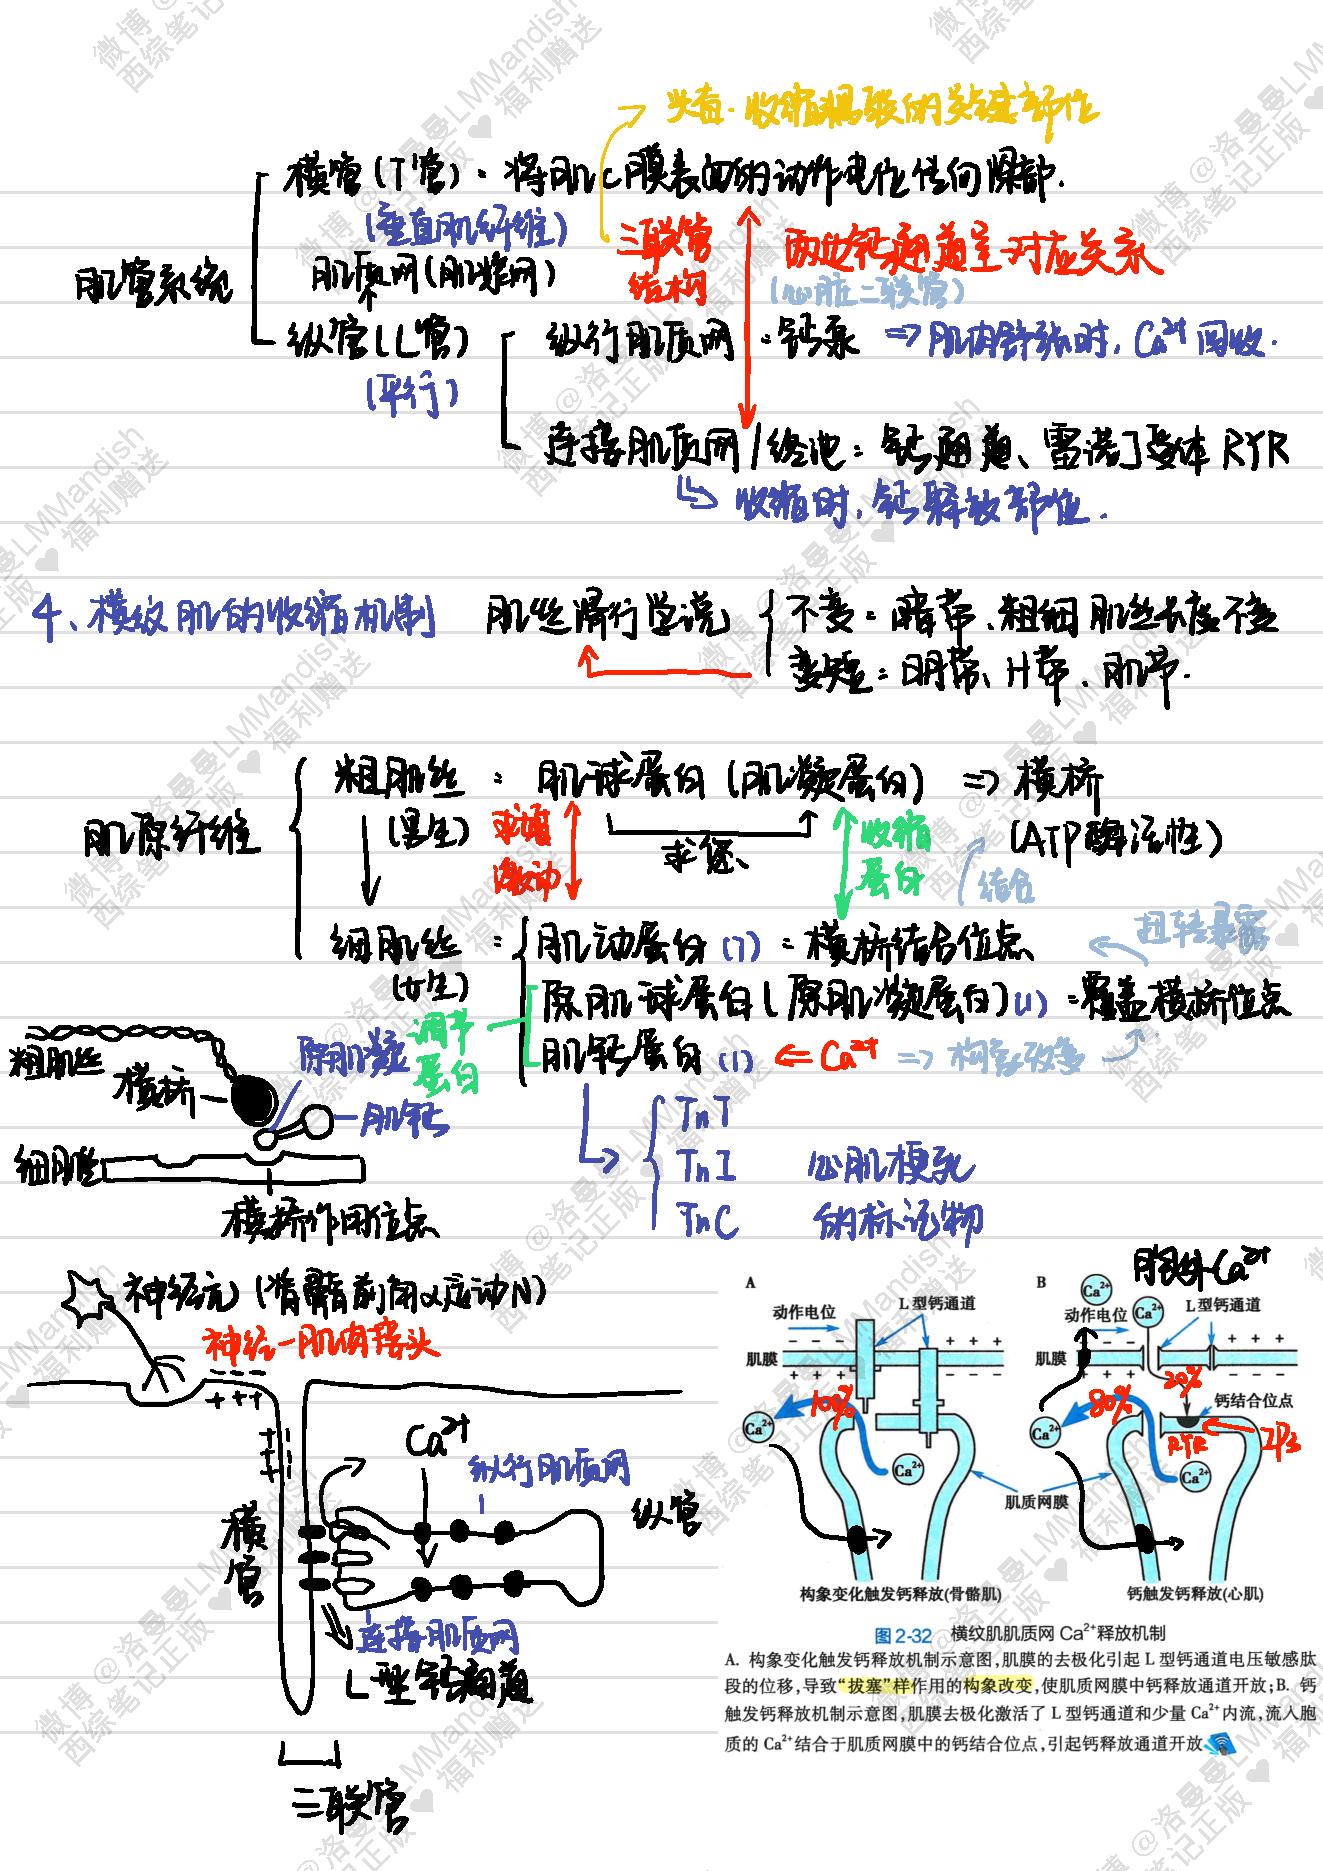 兴奋-收缩耦联的关键部位
横管(T管):将肌C膜表面的动作电位传向深部.
(垂直肌纤维)
三联管
结构
两边钙通道呈一对应关系
(心脏二联管)
肌管系统
肌质网(肌浆网)
纵管(L管)
(平行)
纵行肌质网:钙泵 => 肌肉舒张时, Ca²⁺回收.
连接肌质网/终池:钙通道、雷诺丁受体 RYR
收缩时,钙释放部位.
4、横纹肌的收缩机制 肌丝滑行学说
不变:暗带、粗细肌丝长度不变
变短:明带、H带、肌节.
肌原纤维
粗肌丝:肌球蛋白(肌凝蛋白) => 横桥
(男生)
求您
收缩
蛋白
(ATP酶活性)
结合
扭转暴露
细肌丝:
(女生)
肌动蛋白(7):横桥结合位点
原肌球蛋白(原肌凝蛋白)(1):覆盖横桥位点
肌钙蛋白(1) <= Ca²⁺ => 构象改变
调节
蛋白
粗肌丝
横桥
原肌凝
肌钙
细肌丝
横桥作用位点
TnT
TnI 心肌梗死
TnC 的标记物
神经元(脊髓前角α运动N)
神经-肌肉接头
- - -
+ + +
+ + +
- - -
Ca²⁺
纵行肌质网
纵管
横
管
连接肌质网
L型钙通道
三联管
A
动作电位
L型钙通道
- - - -
+ + + +
肌膜
+ + + +
- - - -
100%
Ca²⁺
Ca²⁺
肌质网膜
构象变化触发钙释放(骨骼肌)
B
胞外Ca²⁺
Ca²⁺
Ca²⁺
动作电位
L型钙通道
+ + + +
肌膜
- - - -
20%
80%
钙结合位点
RYR
IP₃
Ca²⁺
Ca²⁺
钙触发钙释放(心肌)
图2-32 横纹肌肌质网Ca²⁺释放机制
A. 构象变化触发钙释放机制示意图,肌膜的去极化引起L型钙通道电压敏感肽
段的位移,导致“拔塞”样作用的构象改变,使肌质网膜中钙释放通道开放;B. 钙
触发钙释放机制示意图,肌膜去极化激活了L型钙通道和少量Ca²⁺内流,流入胞
质的Ca²⁺结合于肌质网膜中的钙结合位点,引起钙释放通道开放
微博@洛曼曼LMMandish
西综笔记正版♥福利赠送